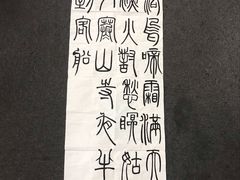 烏啼霜滿天
漁火對愁眠姑
外寒山寺夜半
到客船